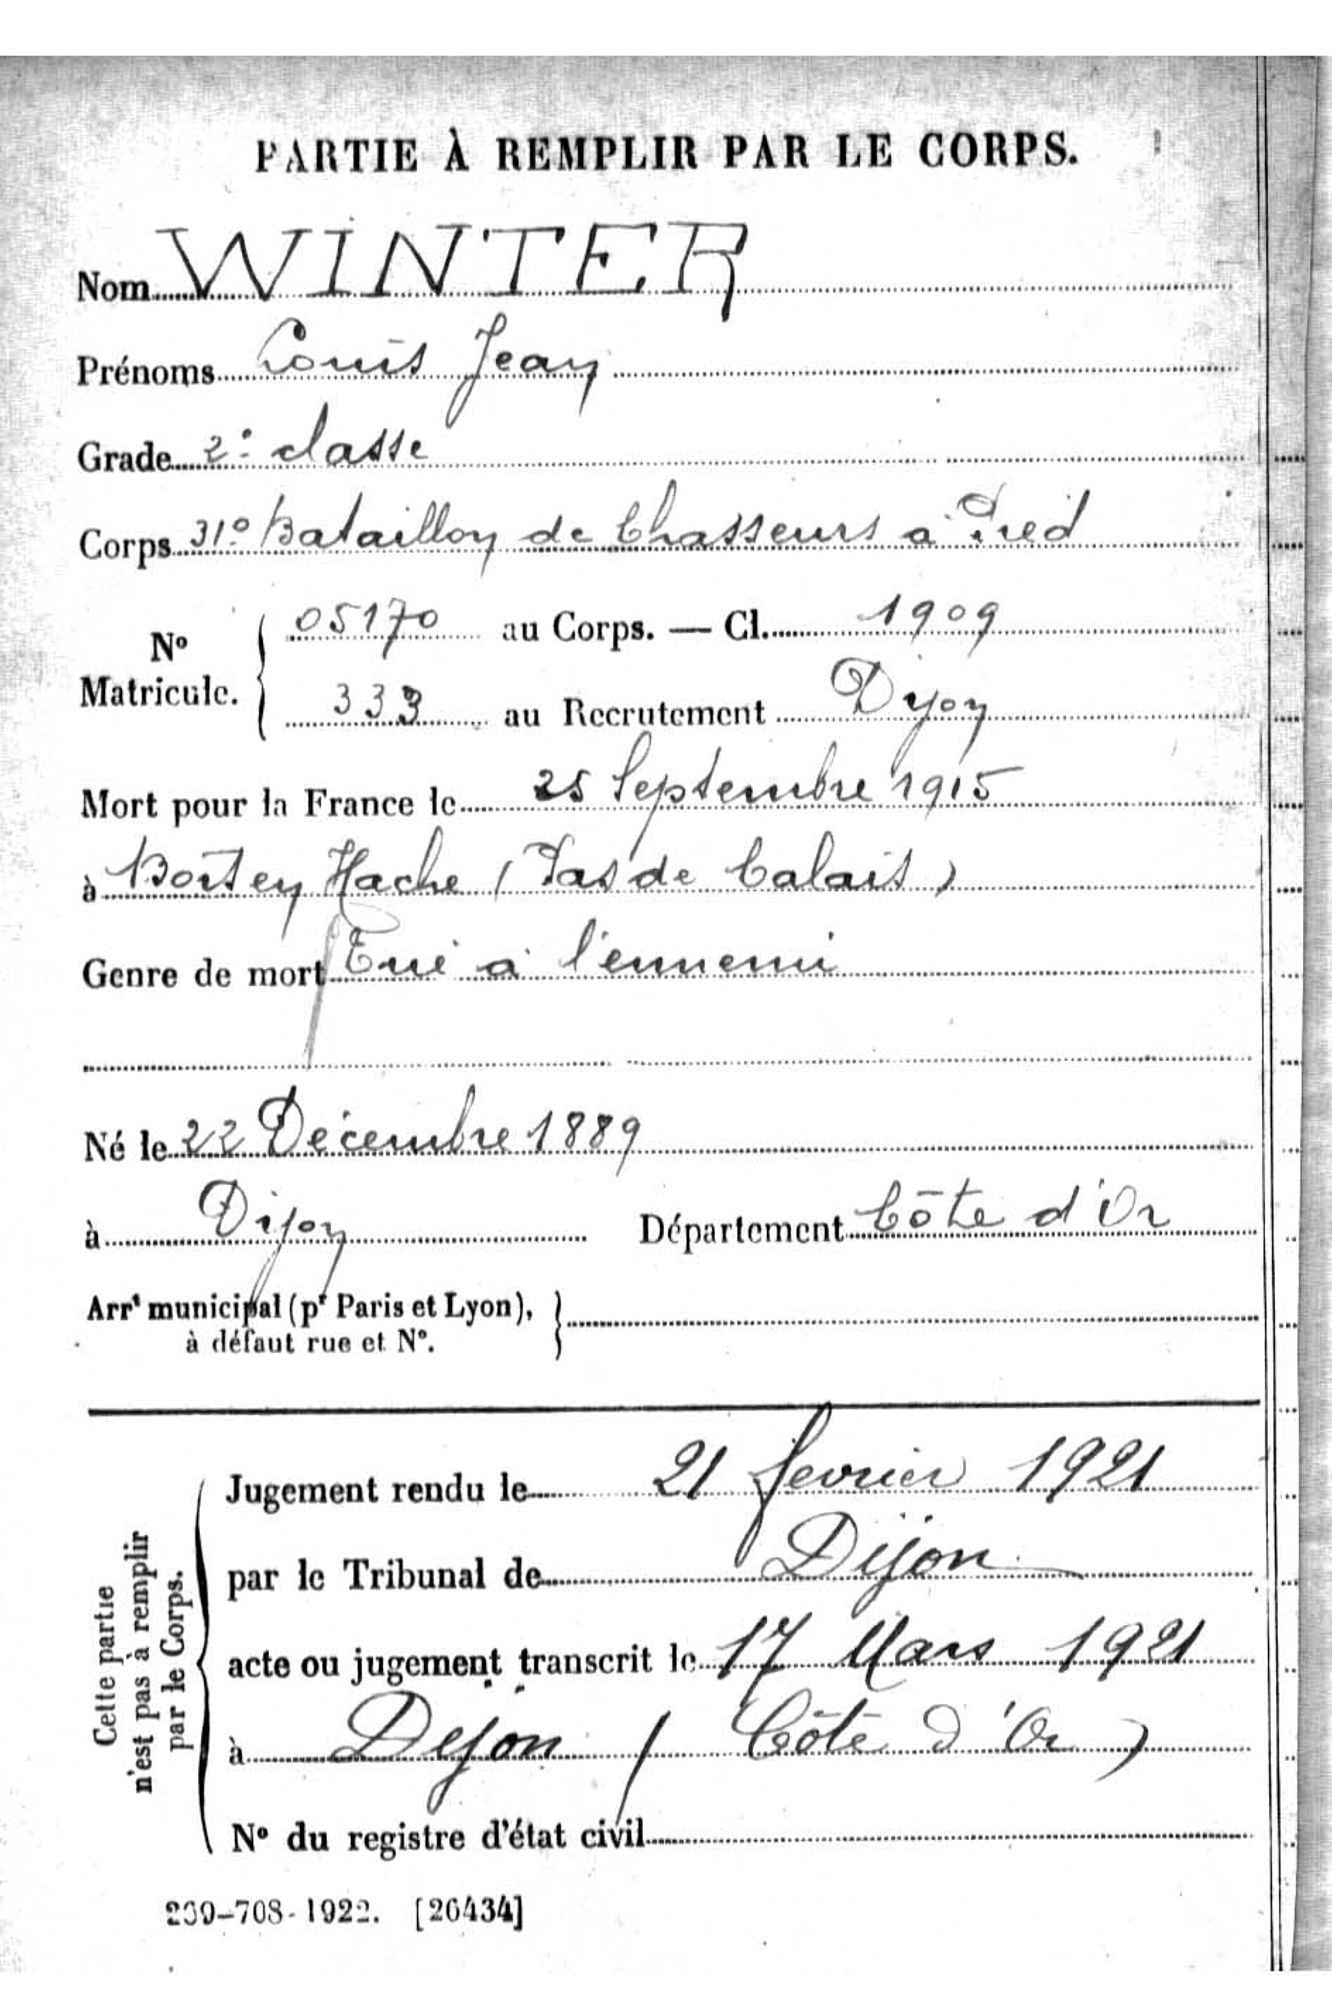 PARTIE À REMPLIR PAR LE CORPS.
Nom WINTER
Prénoms Louis Jean
Grade 2e classe
Corps 31e Bataillon de Chasseurs à Pied
No Matricule. 05170 au Corps. — Cl. 1909
333 au Recrutement Dijon
Mort pour la France le 25 Septembre 1915
à Bois en Hache (Pas de Calais)
Genre de mort Tué à l'ennemi
Né le 22 Décembre 1889
à Dijon Département Côte d'Or
Arrt municipal (pr Paris et Lyon),
à défaut rue et N°.
Cette partie
n'est pas à remplir
par le Corps.
Jugement rendu le 21 fevrier 1921
par le Tribunal de Dijon
acte ou jugement transcrit le 17 Mars 1921
à Dijon (Côte d'Or)
N° du registre d'état civil
-708-1922. [26434]